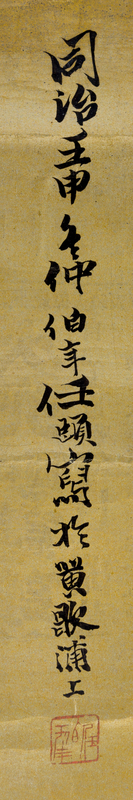 同治壬申冬仲伯年任頤寫於黃歇浦上